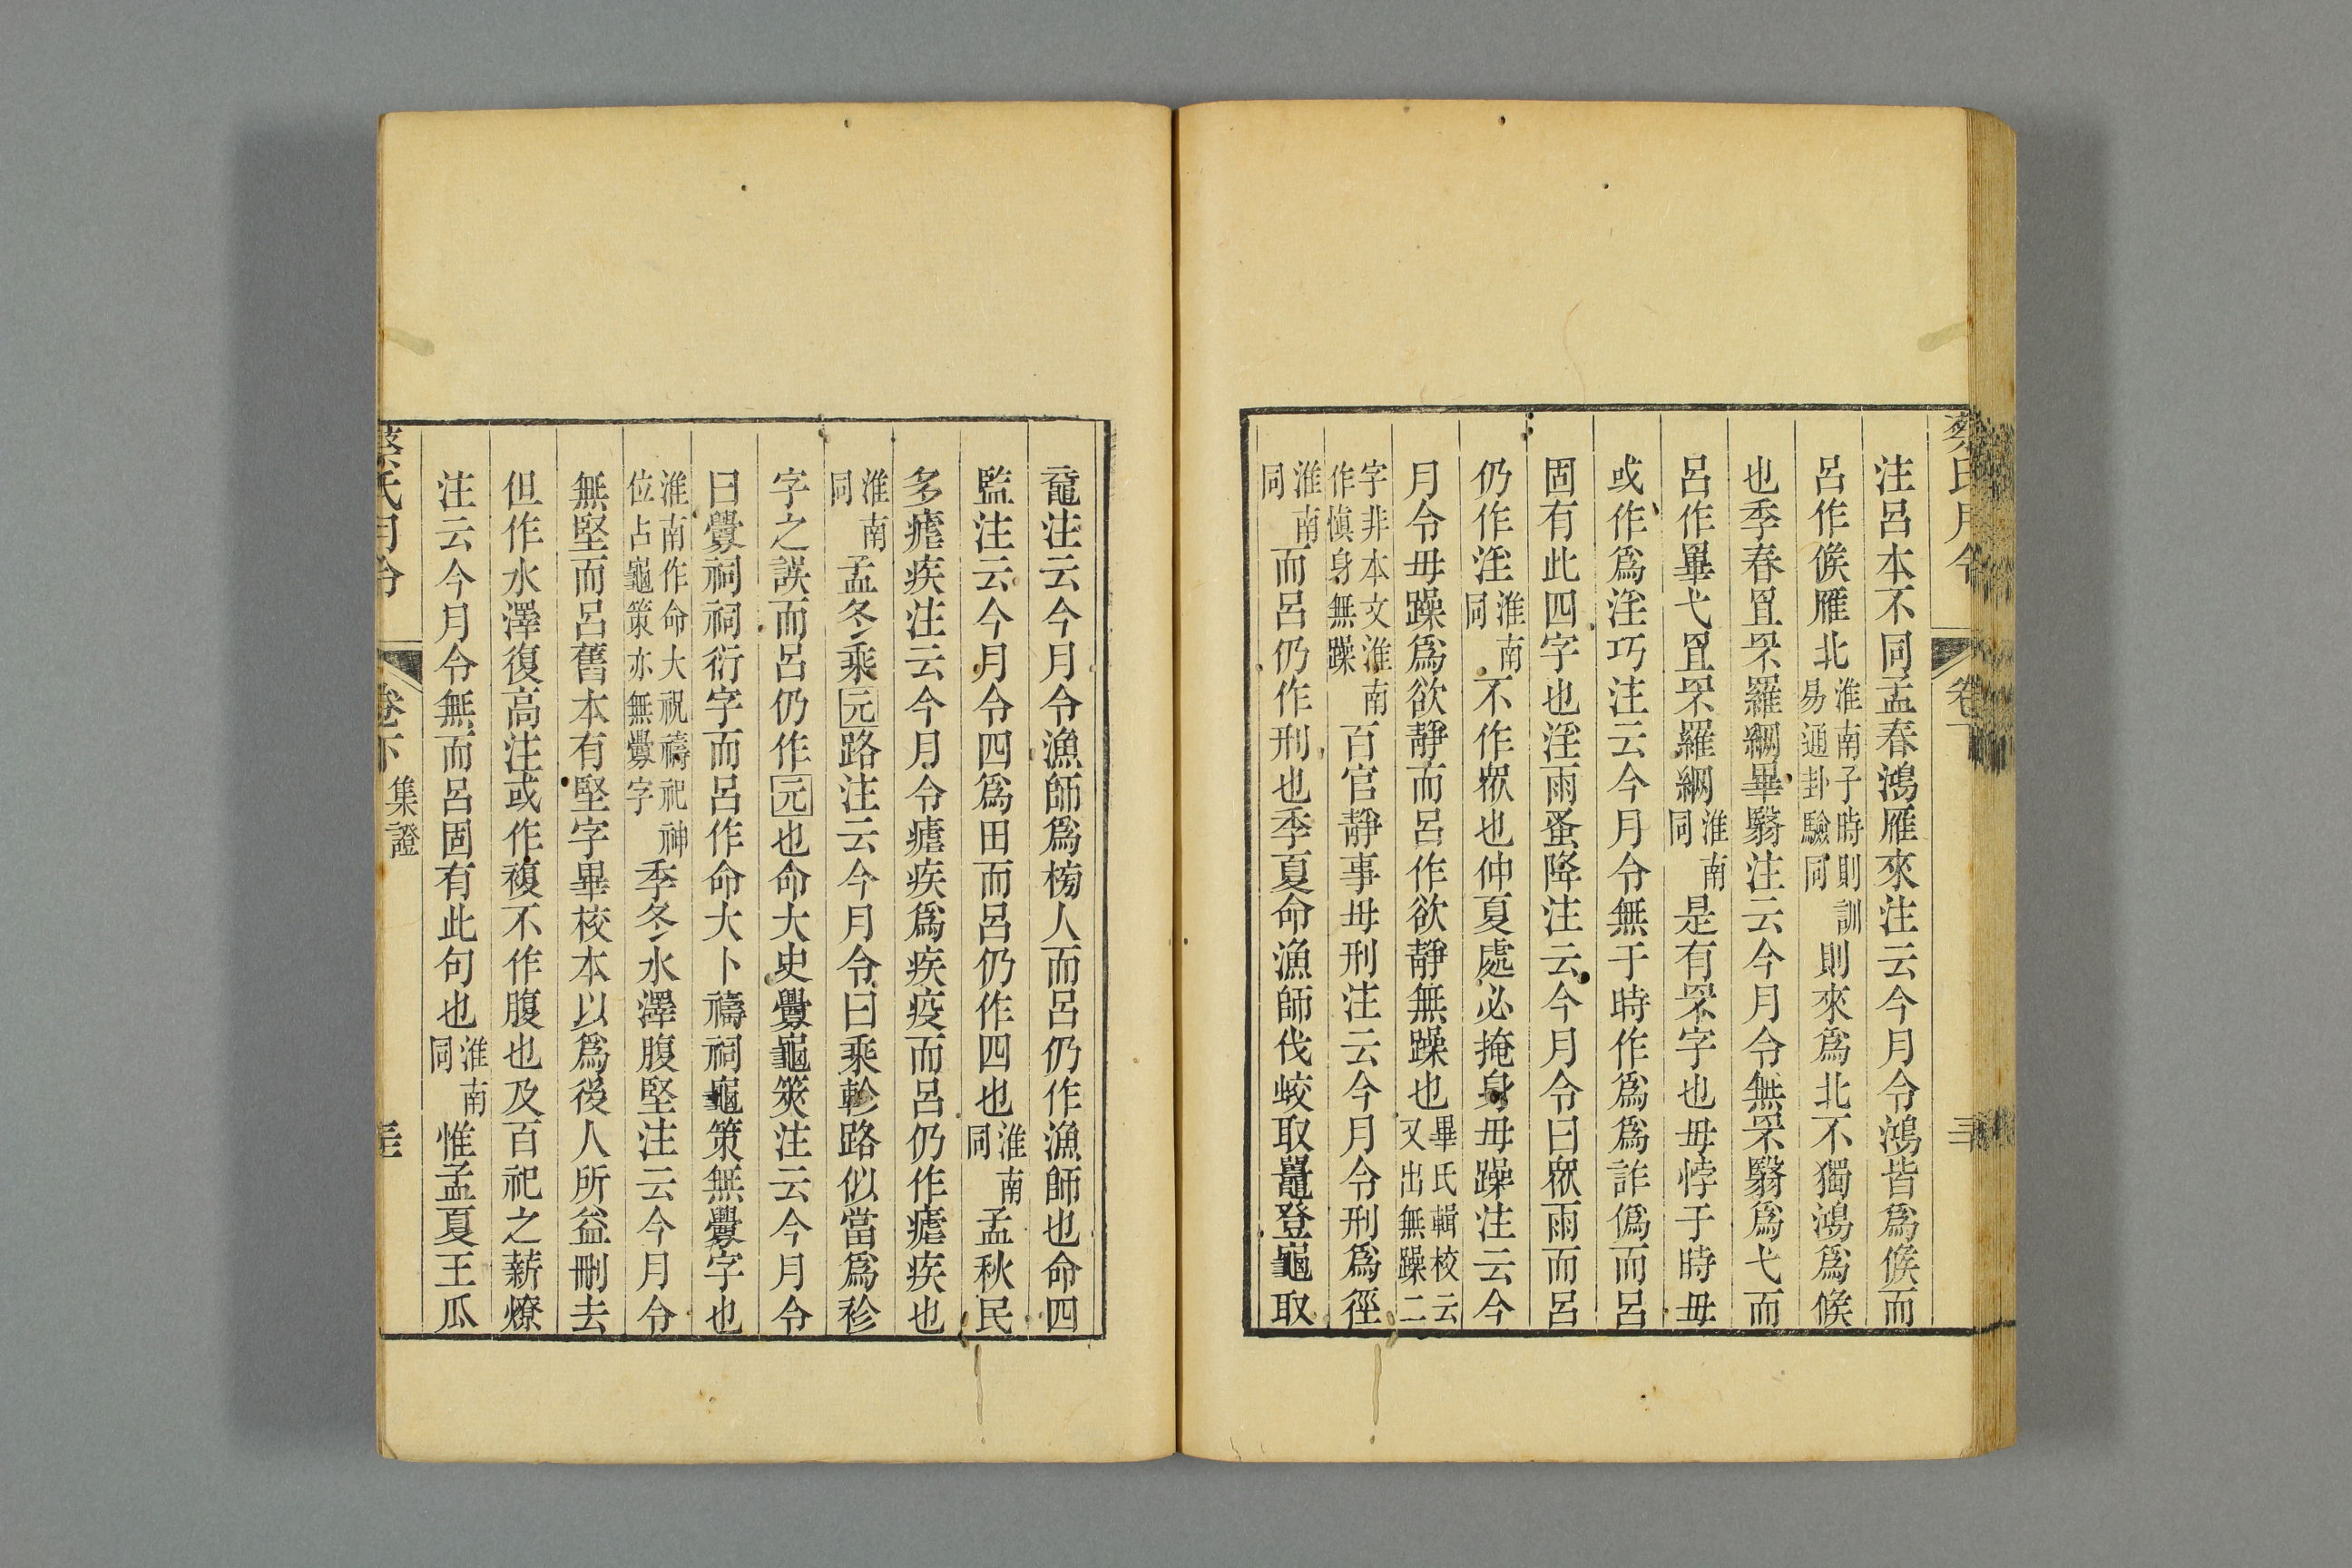 蔡氏月令
卷下
注呂本不同孟春鴻雁來注云今月令鴻皆爲候而
呂作候雁北淮南子時則訓易通卦驗同則來爲北不獨鴻爲候
也季春罝罘羅網畢翳注云今月令無罘翳爲弋而
呂作畢弋罝罘羅網淮南同是有罘字也毋悖于時毋
或作爲淫巧注云今月令無于時作爲爲詐僞而呂
固有此四字也淫雨蚤降注云今月令曰衆雨而呂
仍作淫淮南同不作衆也仲夏處必掩身毋躁注云今
月令毋躁爲欲靜而呂作欲靜無躁也畢氏輯校云又出無躁二
字非本文淮南作愼身無躁百官靜事毋刑注云今月令刑爲徑
淮南同而呂仍作刑也季夏命漁師伐蛟取鼉登龜取
黿注云今月令漁師爲榜人而呂仍作漁師也命四
監注云今月令四爲田而呂仍作四也淮南同孟秋民
多瘧疾注云今月令瘧疾爲疾疫而呂仍作瘧疾也
淮南同孟冬乘元路注云今月令曰乘軫路似當爲袗
字之誤而呂仍作元也命大史釁龜筴注云今月令
曰釁祠祠衍字而呂作命大卜禱祠龜策無釁字也
淮南作命大祝禱祀神位占龜策亦無釁字季冬水澤腹堅注云今月令
無堅而呂舊本有堅字畢校本以爲後人所益刪去
但作水澤復高注或作複不作腹也及百祀之薪燎
注云今月令無而呂固有此句也淮南同惟孟夏王瓜
蔡氏月令
卷下
集證